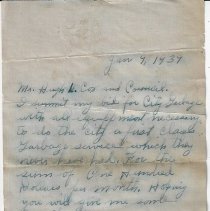 Jan 9, 1937
Mr. Hugh L. Cox and Council.
I submit my bid for City Garbage
with all equipment necessary
to do the City a first class
Garbage service which they
never have had. For the
sum of One Hundred
Dollars per month. Hoping
you will give me some